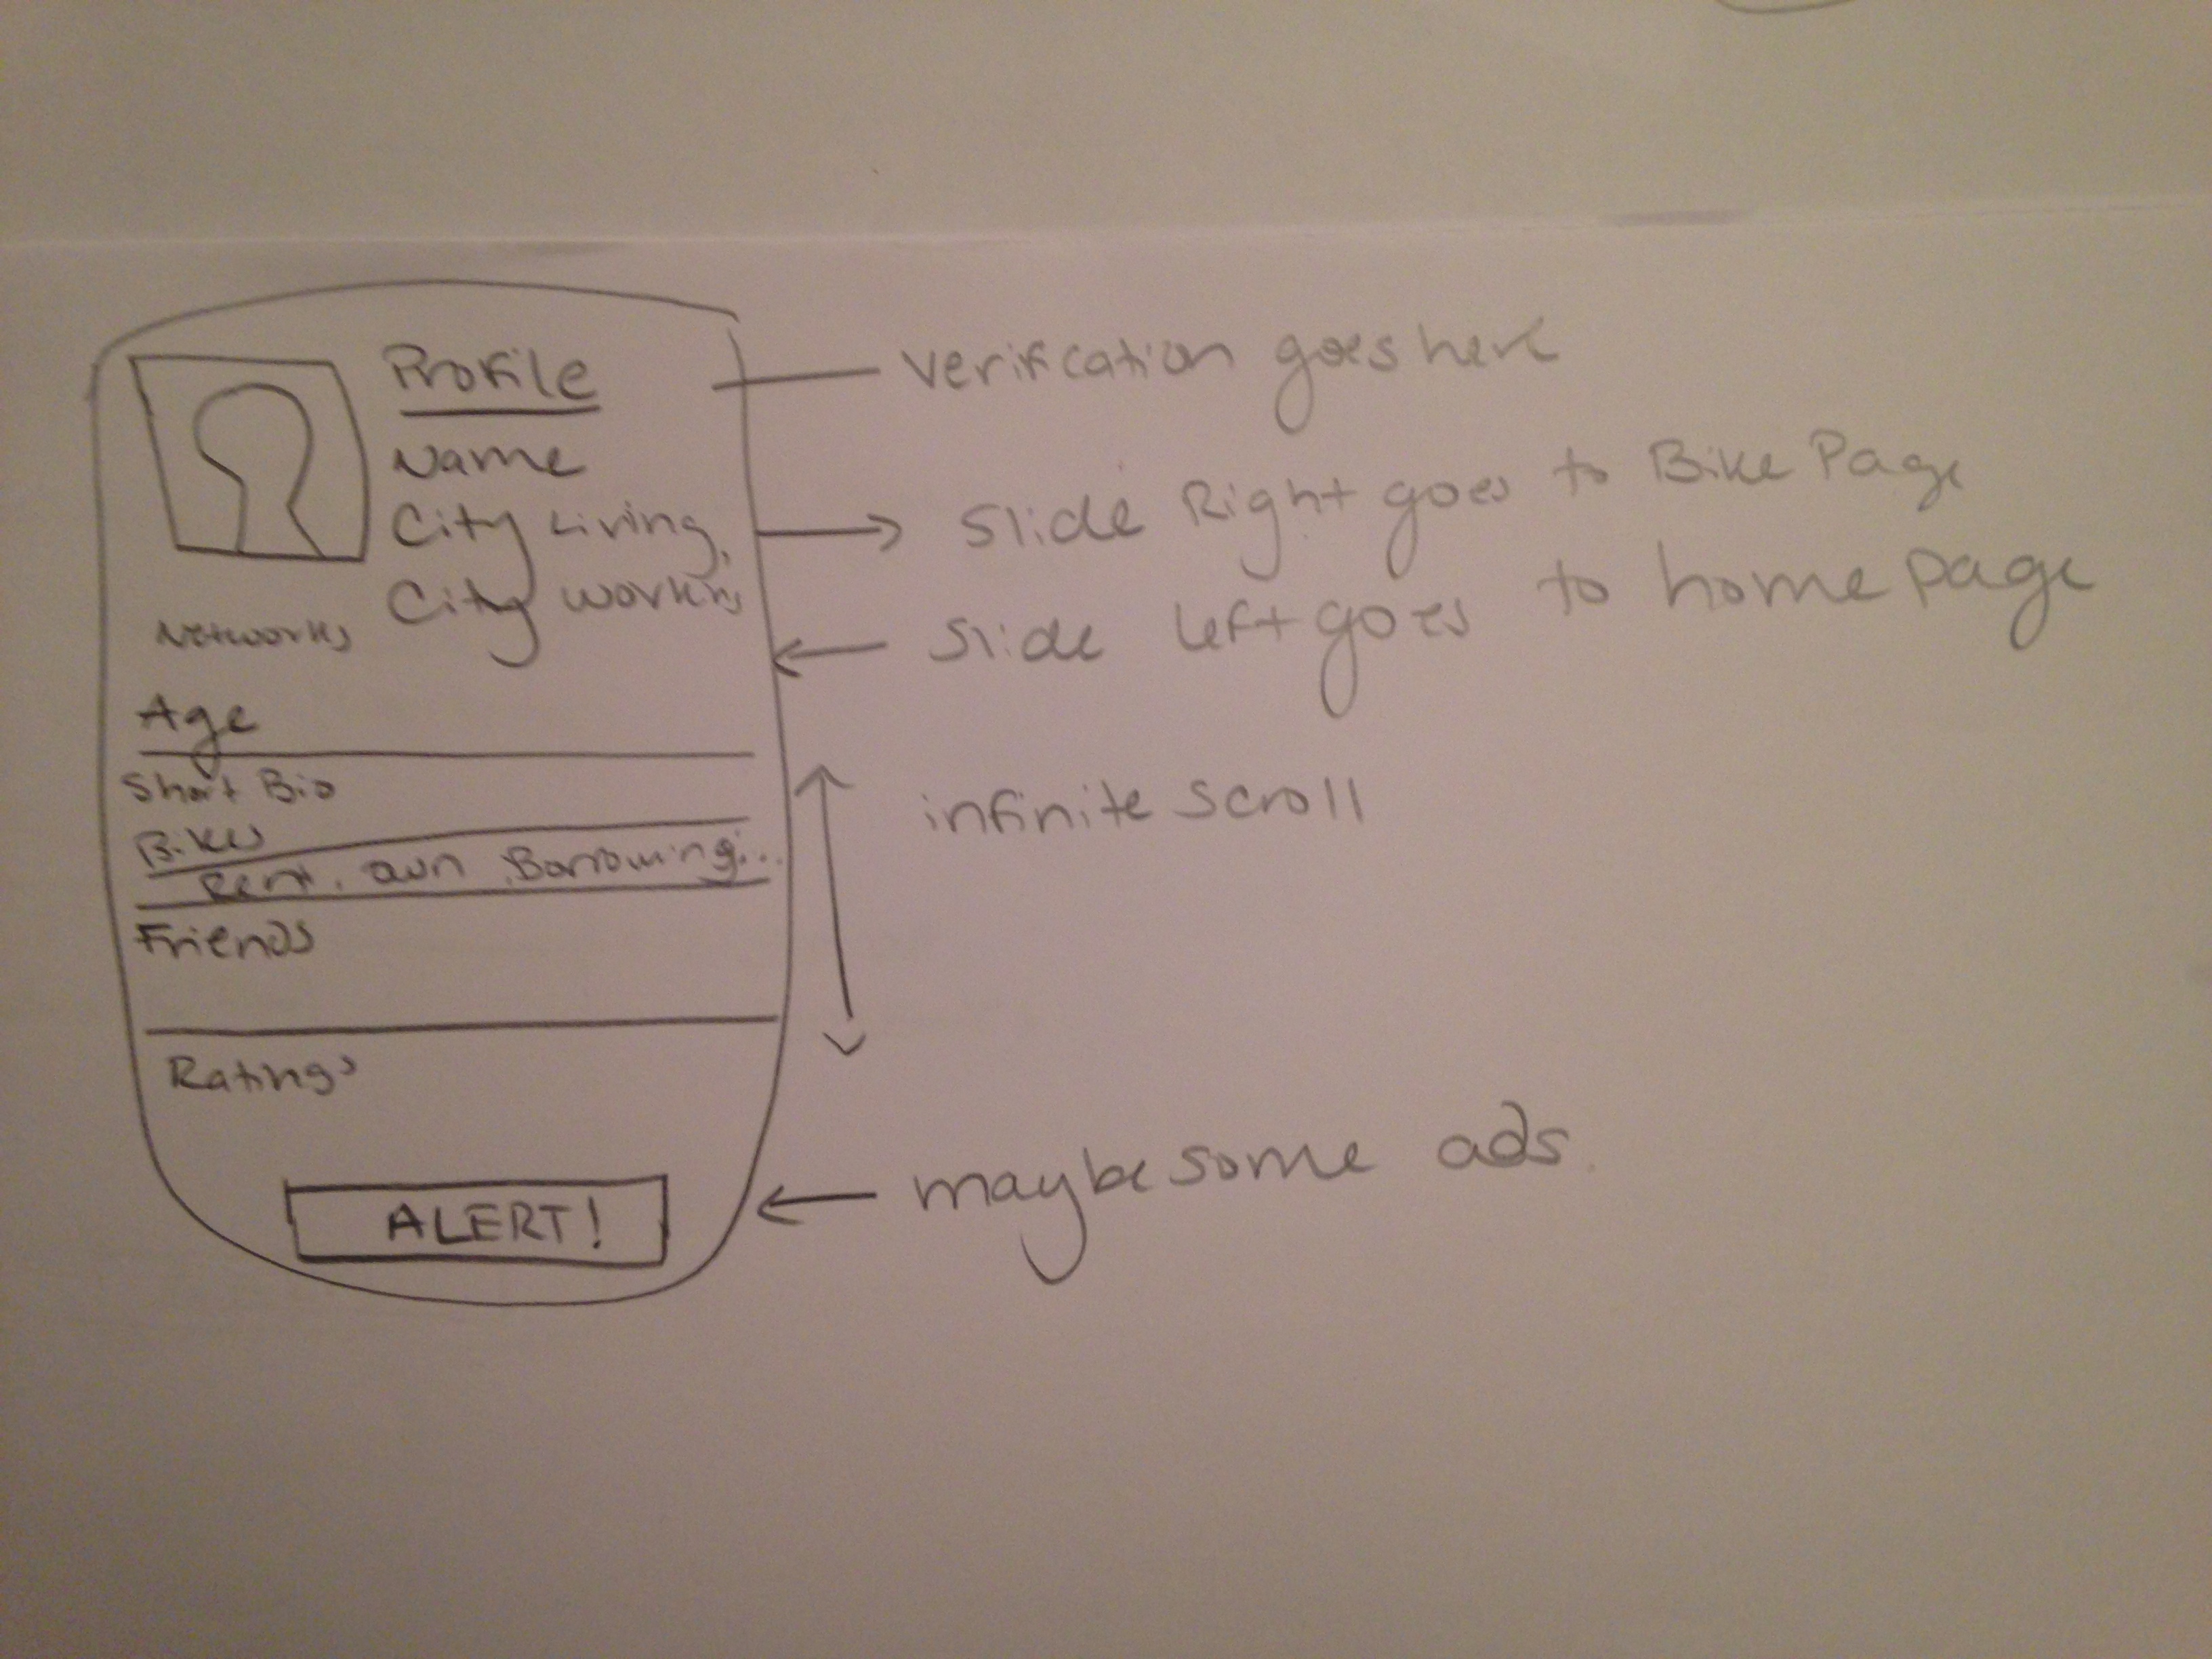 Profile
Name
City Living
City working
Networks
Age
Short Bio
Bikes
Rent, own Borrowing...
Friends
Ratings
ALERT!
Verification goes here
Slide Right goes to Bike Page
Slide Left goes to home page
infinite scroll
maybe some ads